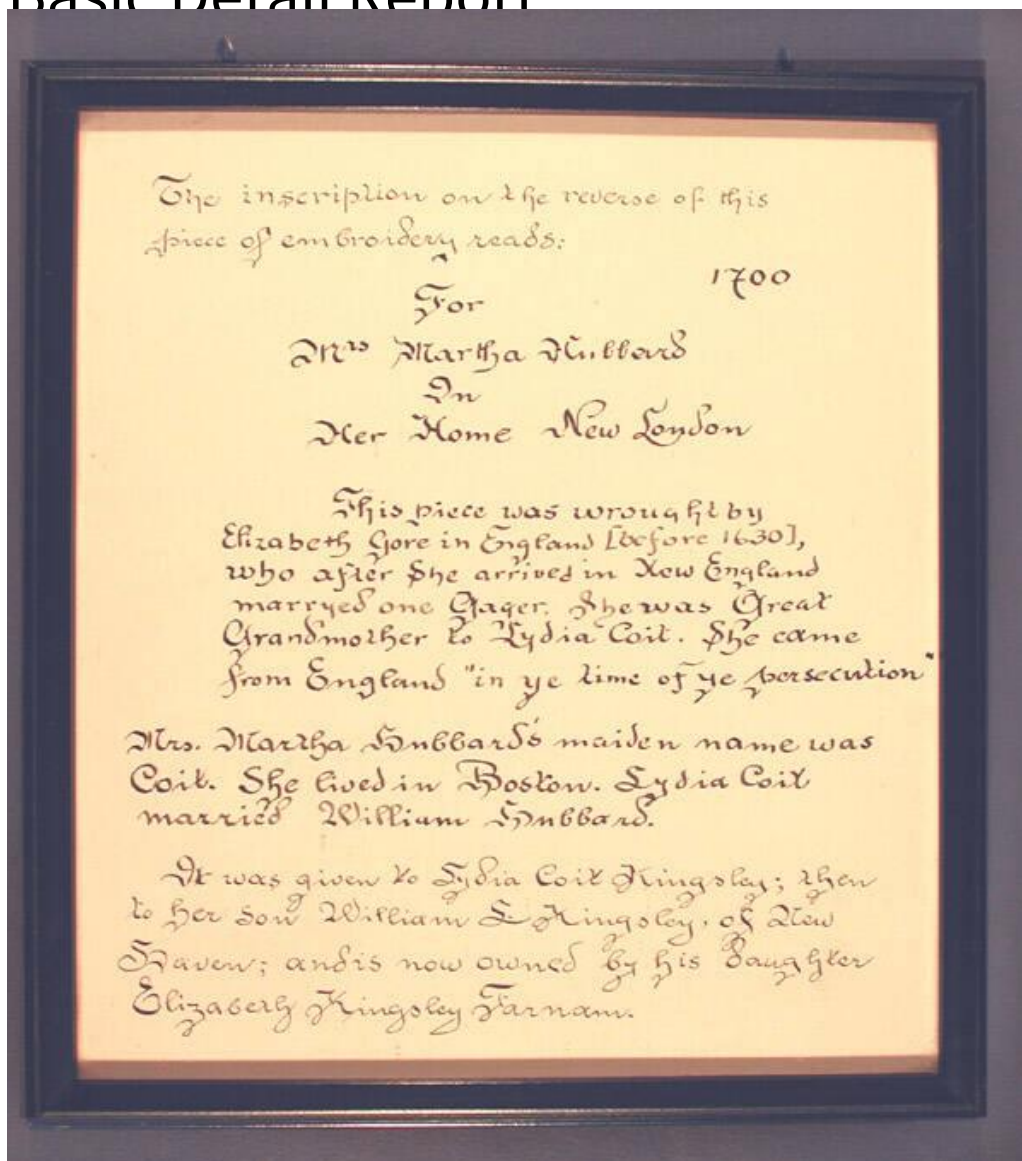 Basic Detail Report
The inscription on the reverse of this
piece of embroidery reads:
1700
For
Mrs Martha Hubbard
In
Her Home New London
This piece was wrought by
Elizabeth Gore in England [before 1630],
who after she arrived in New England
marryed one Gager. She was Great
Grandmother to Lydia Coit. She came
from England "in ye time of ye persecution"
Mrs. Martha Hubbard's maiden name was
Coit. She lived in Boston. Lydia Coit
married William Hubbard.
It was given to Lydia Coit Kingsley; then
to her son William L. Kingsley, of New
Haven; and is now owned by his daughter
Elizabeth Kingsley Farnam.